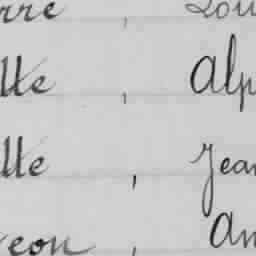 rre , Lou
tte , Alp
tte , Jean
eon , An